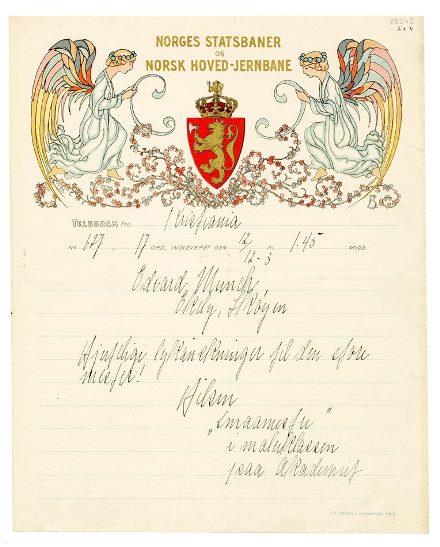 K5242
NORGES STATSBANER
OG
NORSK HOVED-JERNBANE
TELEGRAM fra Kristiania
Nr. 627, 17 ORD, INDLEVERET DEN 12/12-3 KL. 1.45 MIDD.
Edvard Munch,
Ekely, Skøyen
Hjertelige lykønskninger til den store
mester!
Hilsen
"Smaamestre"
i malerklassen
paa Akademiet